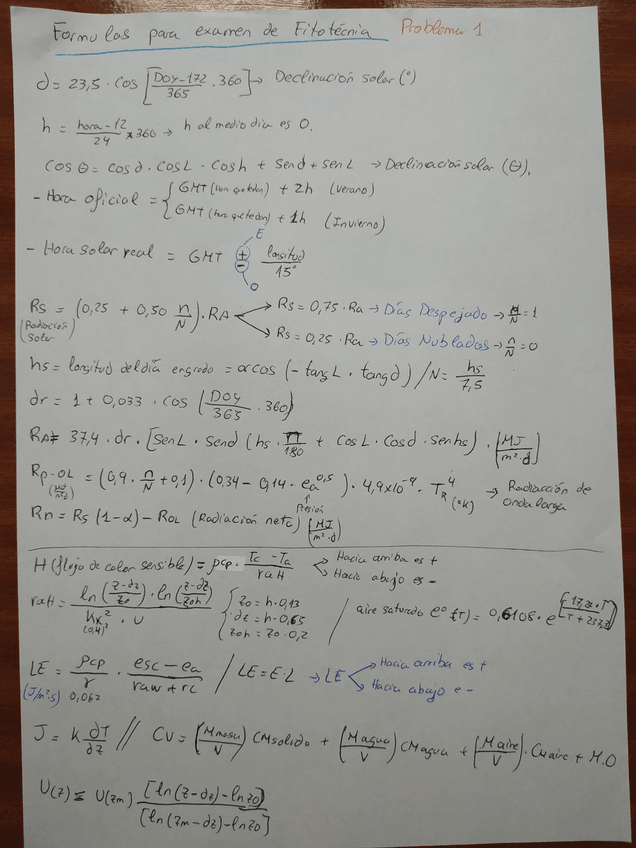 Formulas para examen de Fitotécnia Problema 1
d = 23,5 · cos [DOY-172/365 · 360] → Declinación solar (°)
h = hora-12/24 * 360 → h al medio dia es 0.
cos θ = cos d · cos L · cos h + sen d + sen L → Declinación solar (θ).
- Hora oficial = { GMT (hora que te dan) + 2h (verano)
GMT (hora que te dan) + 1h (Invierno)
E
- Hora solar real = GMT + - longitud/15°
O
Rs = (0,25 + 0,50 n/N) · RA → Rs = 0,75 · Ra → Días Despejado → n/N = 1
(Radiación solar) → Rs = 0,25 · Ra → Días Nublados → n/N = 0
hs = longitud del día en grado = arcos (- tang L · tang d) / N = hs/7,5
dr = 1 + 0,033 · cos (DOY/365 · 360)
RA = 37,4 · dr · [sen L · sen d (hs · π/180 + cos L · cos d · sen hs) · [MJ/m²·d]
Rp-OL = (0,9 · n/N + 0,1) · (0,34 - 0,14 · ea^0,5) · 4,9x10^-9 · T_R^4 (°K) → Radiación de onda larga
Presión
Rn = Rs (1-α) - ROL (Radiación neta) [MJ/m²·d]
H (flujo de calor sensible) = ρcp · Tc - Ta/raH Hacia arriba es +
Hacia abajo es -
raH = ln(z-dz/zo) · ln(z-dz/zoh)/K² · U { zo = h·0,13 / aire saturado e°(T) = 0,6108 · e^[17,27·T/T+237,3]
(0,4)² dz = h·0,65
zoh = zo·0,2
LE = ρcp/γ · esc - ea/raw + rc / LE = E·L → LE Hacia arriba es +
(J/m²·s) 0,067 Hacia abajo e -
J = K ∂T/∂z // CV = (M masa/V) CM solido + (M agua/V) CM agua + (M aire/V) · CM aire + M.O
U(z) = U(zm) [ln(z-dz) - ln zo]/[ln(zm-dz) - ln zo]